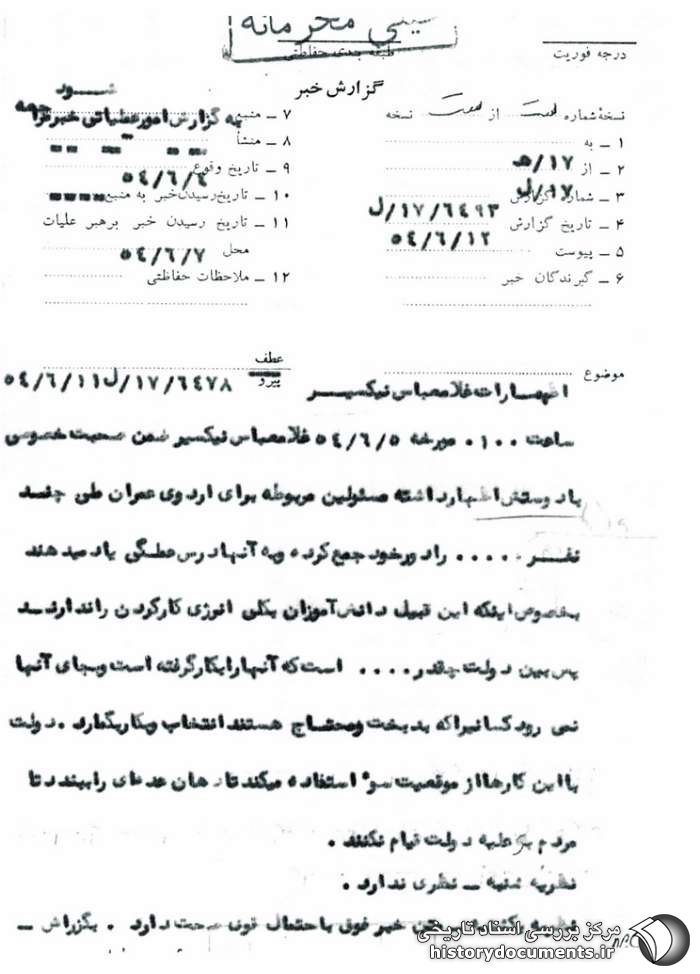 خیلی محرمانه
طبقه بندی حفاظتی
درجه فوریت
گزارش خبر
نسخهٔ شماره از نسخه
۱ ـ به
۲ ـ از ۱۷/ه‍
۳ ـ شماره گزارش ۱۷/ل
۱۷/۶۴۹۳/ل
۴ ـ تاریخ گزارش ۵۴/۶/۱۲
۵ ـ پیوست
۶ ـ گیرندگان خبر
۷ ـ منبع به گزارش امور عملیاتی خبر مراجعه شود
۸ ـ منشأ
۹ ـ تاریخ وقوع ۵۴/۶/۴
۱۰ ـ تاریخ رسیدن خبر به منبع
۱۱ ـ تاریخ رسیدن خبر برهبر عملیات
محل ۵۴/۶/۷
۱۲ ـ ملاحظات حفاظتی
موضوع
عطف
پیرو ۱۷/۶۴۷۸/ل ۵۴/۶/۱۱
اظهارات غلامعباس نیکسیر
ساعت ۰۱۰۰ مورخه ۵۴/۶/۵ غلامعباس نیکسیر ضمن صحبت خصوصی
با دوستش اظهار داشته مسئولین مربوطه برای اردوی عمران طی چند
نفر ..... را دور خود جمع کرده و به آنها درس عملگی یاد میدهند
بخصوص اینکه این قبیل دانش آموزان بکلی انرژی کار کردن را ندارند
پس ببین دولت چقدر .... است که آنها را بکار گرفته است و بجای آنها
نمی رود کسانی را که بدبخت و محتاج هستند انتخاب و بکار بگمارد . دولت
با این کارها از موقعیت سوء استفاده میکند تا دهان عده ای را ببندد تا
مردم بر علیه دولت قیام نکنند .
نظریه شنبه ـ نظری ندارد .
نظریه یکشنبه ـ متن خبر فوق باحتمال قوی صحت دارد . بگزارش ـ
مرکز بررسی اسناد تاریخی
historydocuments.ir